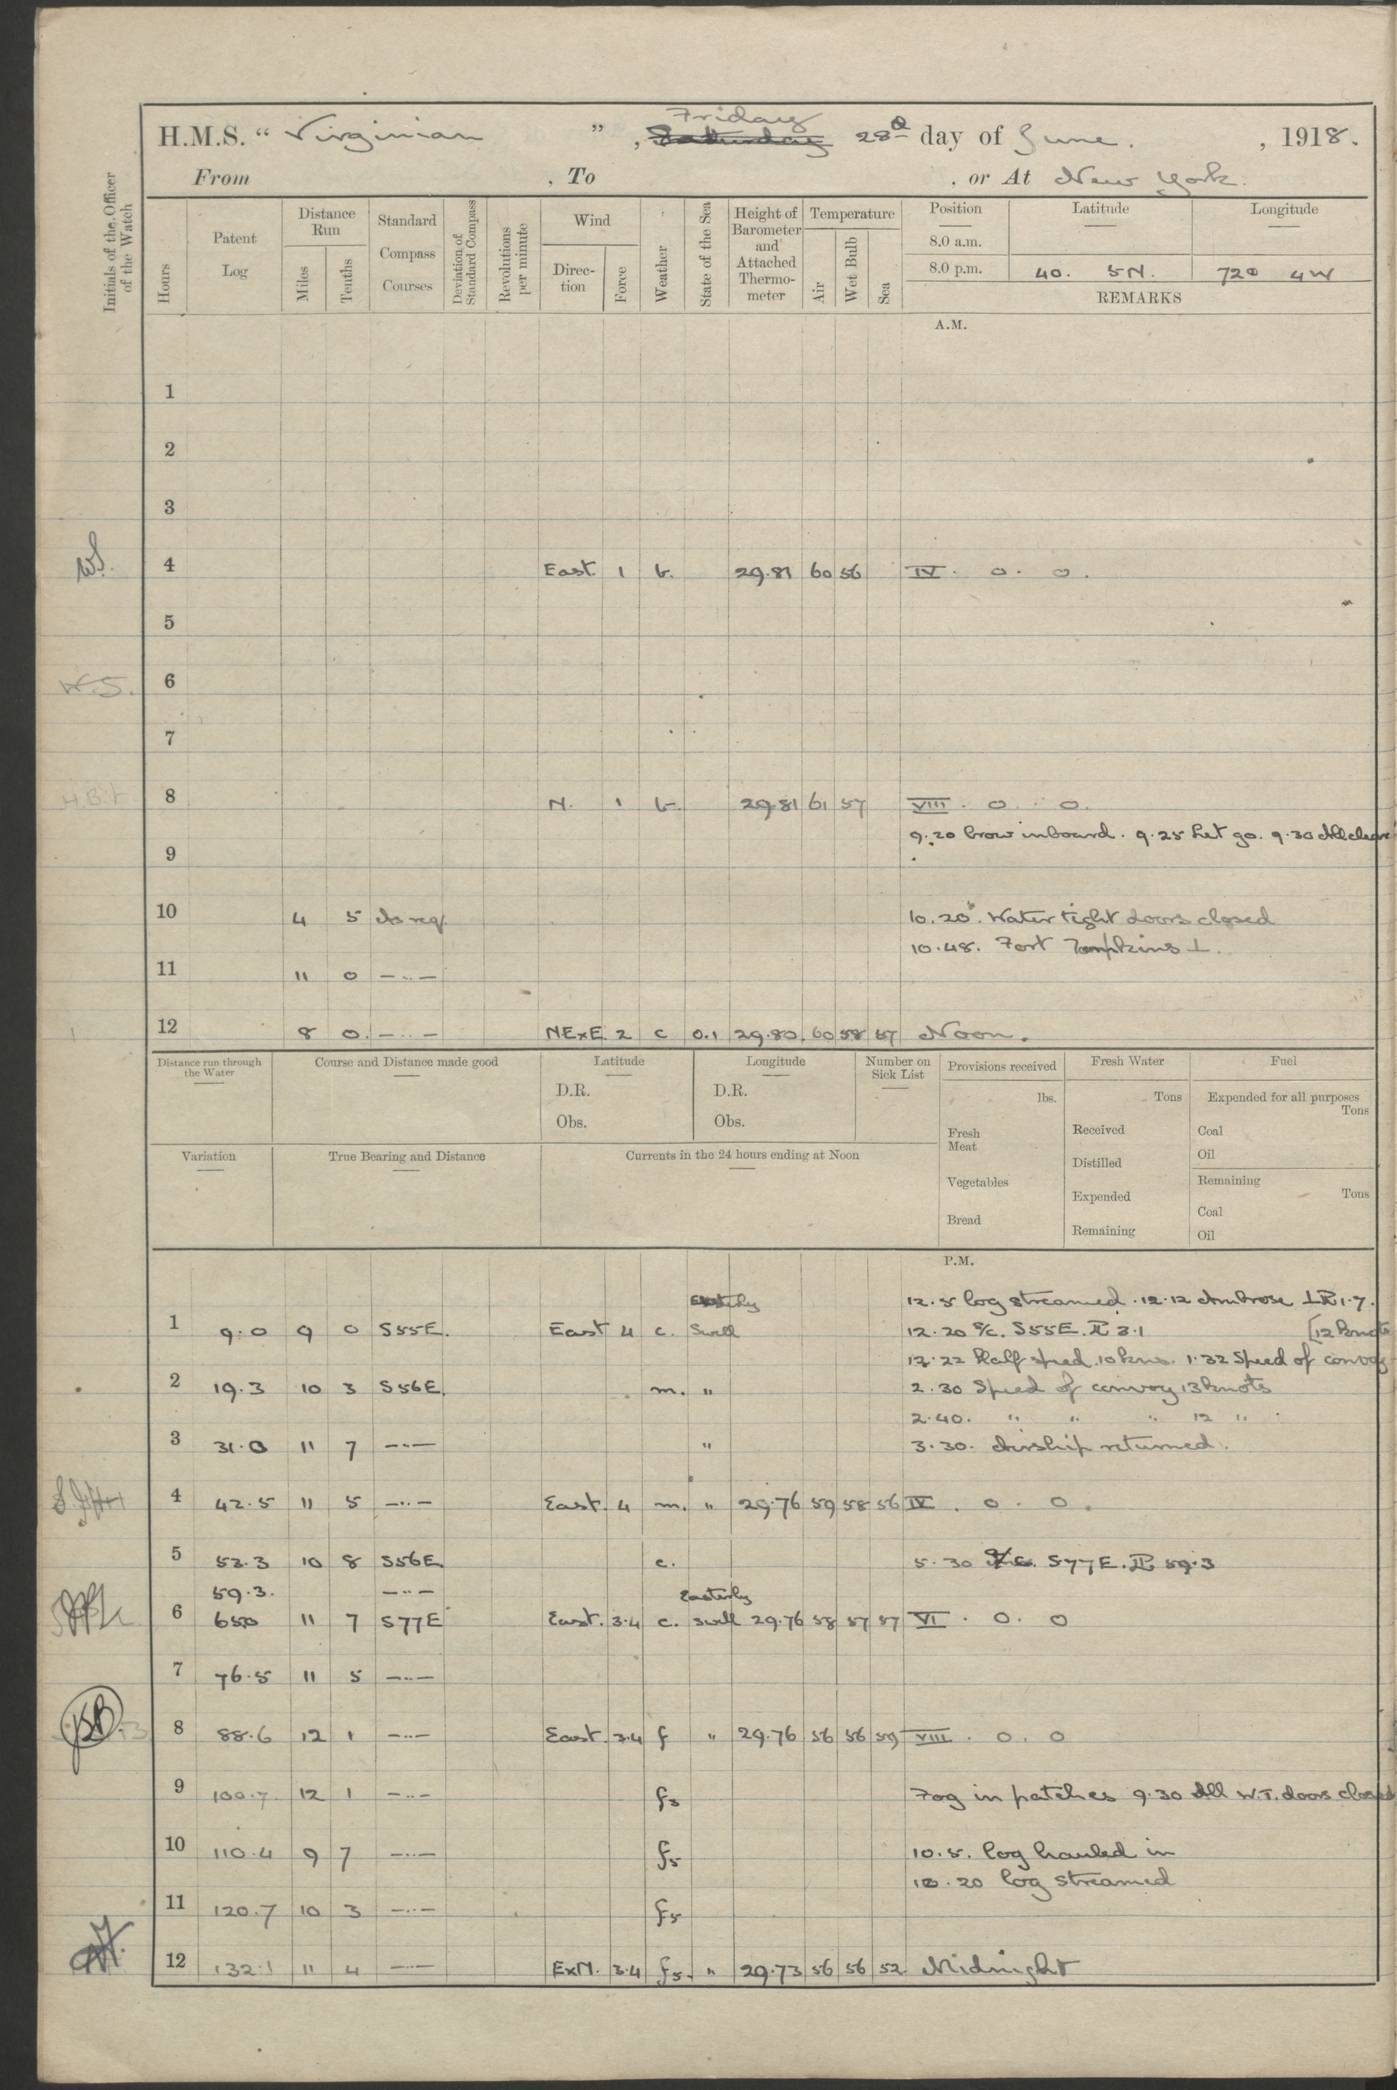 Friday
H.M.S. " Virginian ", Saturday 28th day of June. , 1918.
From , To , or At New York.
Initials of the Officer of the Watch
Hours
Patent Log
Distance Run
Miles
Tenths
Standard Compass Courses
Deviation of Standard Compass
Revolutions per minute
Wind
Direction
Force
Weather
State of the Sea
Height of Barometer and Attached Thermometer
Temperature
Air
Wet Bulb
Sea
Position Latitude Longitude
8.0 a.m.
8.0 p.m. 40. 5N. 72° 4W
REMARKS
A.M.
1
2
3
W.S. 4 East. 1 b. 29.81 60 56 IV. 0. 0.
5
W.S. 6
7
8 N. 1 b. 29.81 61 57 VIII. 0. 0.
9.20 brow inboard. 9.25 Let go. 9.30 All clear
9
10 4 5 As req. 10.20. Water tight doors closed
10.48. Fort Tompkins ⊥.
11 11 0 -..-
12 8 0. -..- NExE 2 c 0.1 29.80. 60 58 57 Noon.
Distance run through the Water Course and Distance made good Latitude Longitude Number on Sick List Provisions received Fresh Water Fuel
D.R. D.R. lbs. Tons Expended for all purposes Tons
Obs. Obs. Fresh Meat Received Coal
Distilled Oil
Variation True Bearing and Distance Currents in the 24 hours ending at Noon
Vegetables Expended Remaining Tons
Bread Remaining Coal
Oil
P.M.
Easterly 12.5 log streamed. 12.12 Ambrose ⊥ Pl 1.7.
1 9.0 9 0 S55E. East 4 c. Swell 12.20 a/c. S55E. Pl 3.1 [12 knots
12.22 Half speed 10 kns. 1.32 Speed of convoy
2 19.3 10 3 S56E. m. " 2.30 Speed of convoy 13 knots
2.40. " " " 12 "
3 31.0 11 7 -..- " 3.30. Airship returned.
4 42.5 11 5 -..- East. 4 m. " 29.76 59 58 56 IV. 0. 0.
5 53.3 10 8 S56E. c. 5.30 a/c. S77E. Pl 59.3
59.3. -..- Easterly
6 65.0 11 7 S77E East. 3.4 c. swell 29.76 58 57 57 VI. 0. 0
7 76.5 11 5 -..-
8 88.6 12 1 -..- East. 3.4 f " 29.76 56 56 59 VIII. 0. 0
9 100.7 12 1 -..- f3 Fog in patches 9.30 All W.T. doors closed
10 110.4 9 7 -..- f5 10.5. log hauled in
10.20 log streamed
11 120.7 10 3 -..- f5
12 132.1 11 4 -..- ExN. 3.4 f5. " 29.73 56 56 52 Midnight